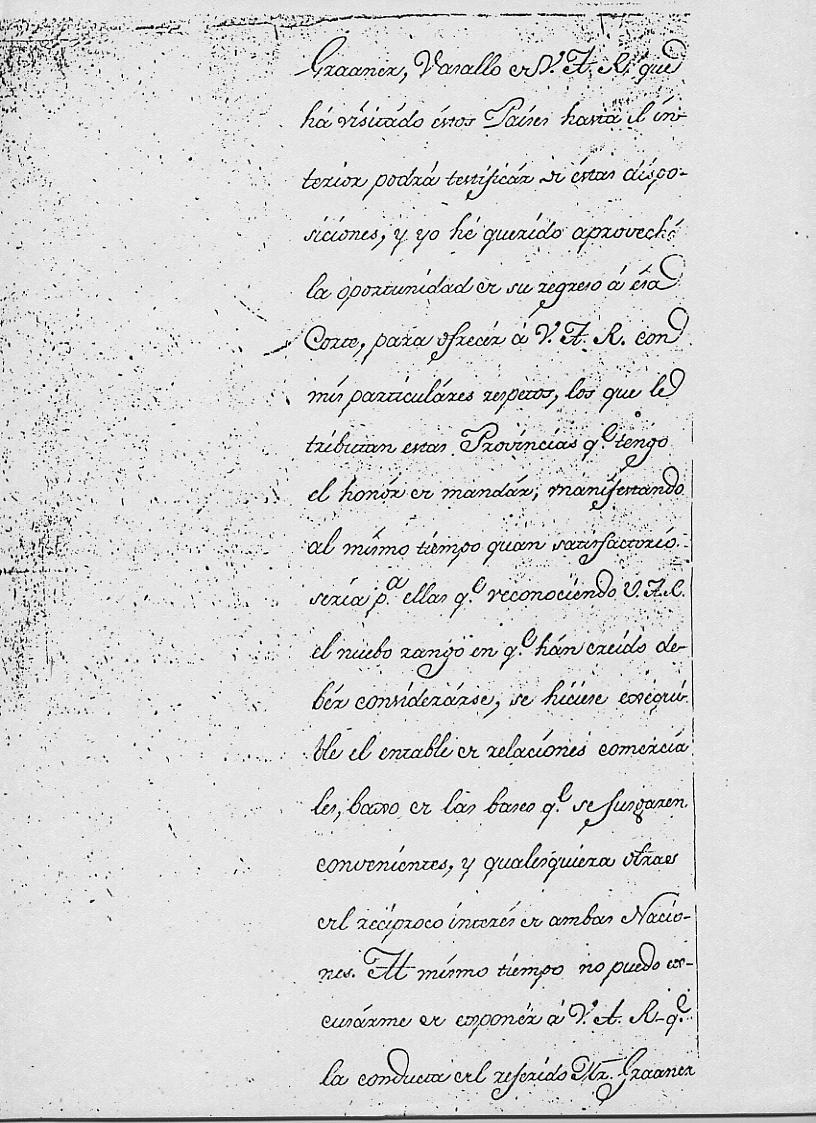 Graaner, Vasallo de V. A. R. que
há visitádo éstos Países hasta el in-
terior podrá testificár de éstas dispo-
siciónes, y yo hé querído aprovechá
la oportunidad de su regreso á esa
Corte, para ofrecér á V. A. R. con
mis particuláres respetos, los que le
tributan estas Províncias q.e tengo
el honór de mandár, manifestando
al mísmo tíempo quan satisfactorío
sería p.a ellas q.e reconocíendo V. A. R.
el nuebo rango en q.e hán creído de-
bér considerárse, se hícíese
el entable de relacíones comercía
les, baxo de las bases q.e se jusgaren
convenientes, y qualesquiera otraes
del recíproco ínterés de ambas Nacío-
nes. Al mísmo tíempo no puedo ex-
cusárme de exponér á V. A. R. q.e
la conducta del referído Mr. Graaner